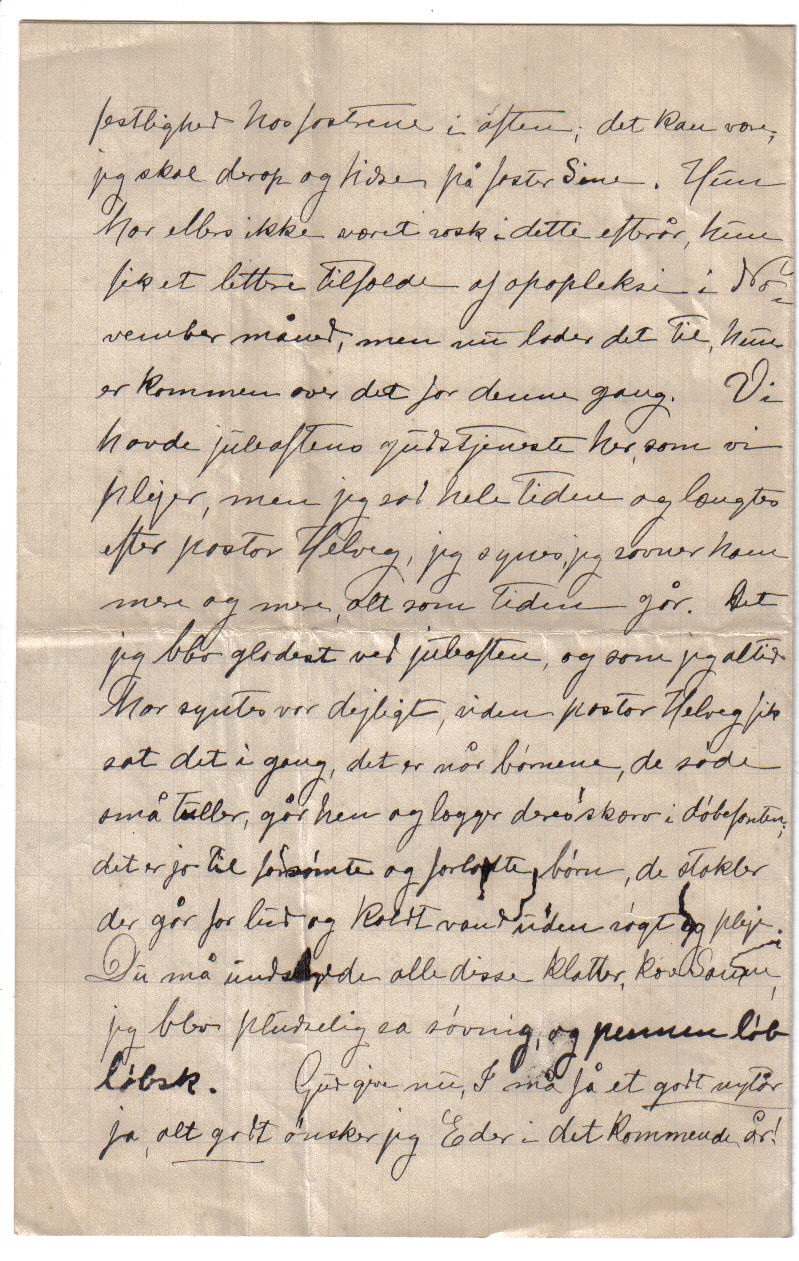 festlighed hos fostrene i aften; det kan være,
jeg skal derop og hilse på foster Sine. Hun
har ellers ikke været rask i dette efterår, hun
fik et lettere tilfælde af apopleksi i No-
vember måned, men nu lader det til, hun
er kommen over det for denne gang. Vi
havde juleaftens gudstjeneste her, som vi
plejer, men jeg sad hele tiden og længtes
efter pastor Helveg, jeg synes, jeg savner ham
mere og mere, alt som tiden går. Det
jeg blev gladest ved juleaften, og som jeg altid
har syntes var dejligt, siden pastor Helveg fik
sat det i gang, det er når børnene, de søde
små tuller, går hen og lægger deres skærv i døbefonten;
det er jo til forsømte og forladte børn, de stakler
der går for lud og koldt vand uden røgt og pleje.
Du må undskylde alle disse klatter, kære
jeg blev pludselig så søvnig, og pennen løb
løbsk. Gud give nu, I må få et godt nytår
ja, alt godt ønsker jeg Eder i det kommende år!